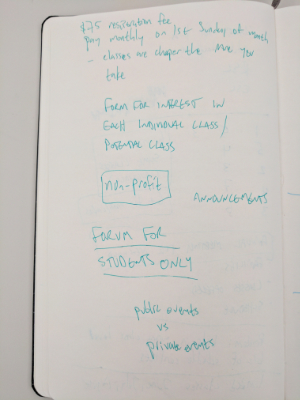 $75 registration fee
pay monthly on 1st Sunday of month
- classes are cheaper the more you
take
FORM FOR INTEREST IN
EACH INDIVIDUAL CLASS/
POTENTIAL CLASS
non-profit
ANNOUNCEMENTS
FORUM FOR
STUDENTS ONLY
public events
vs
private events